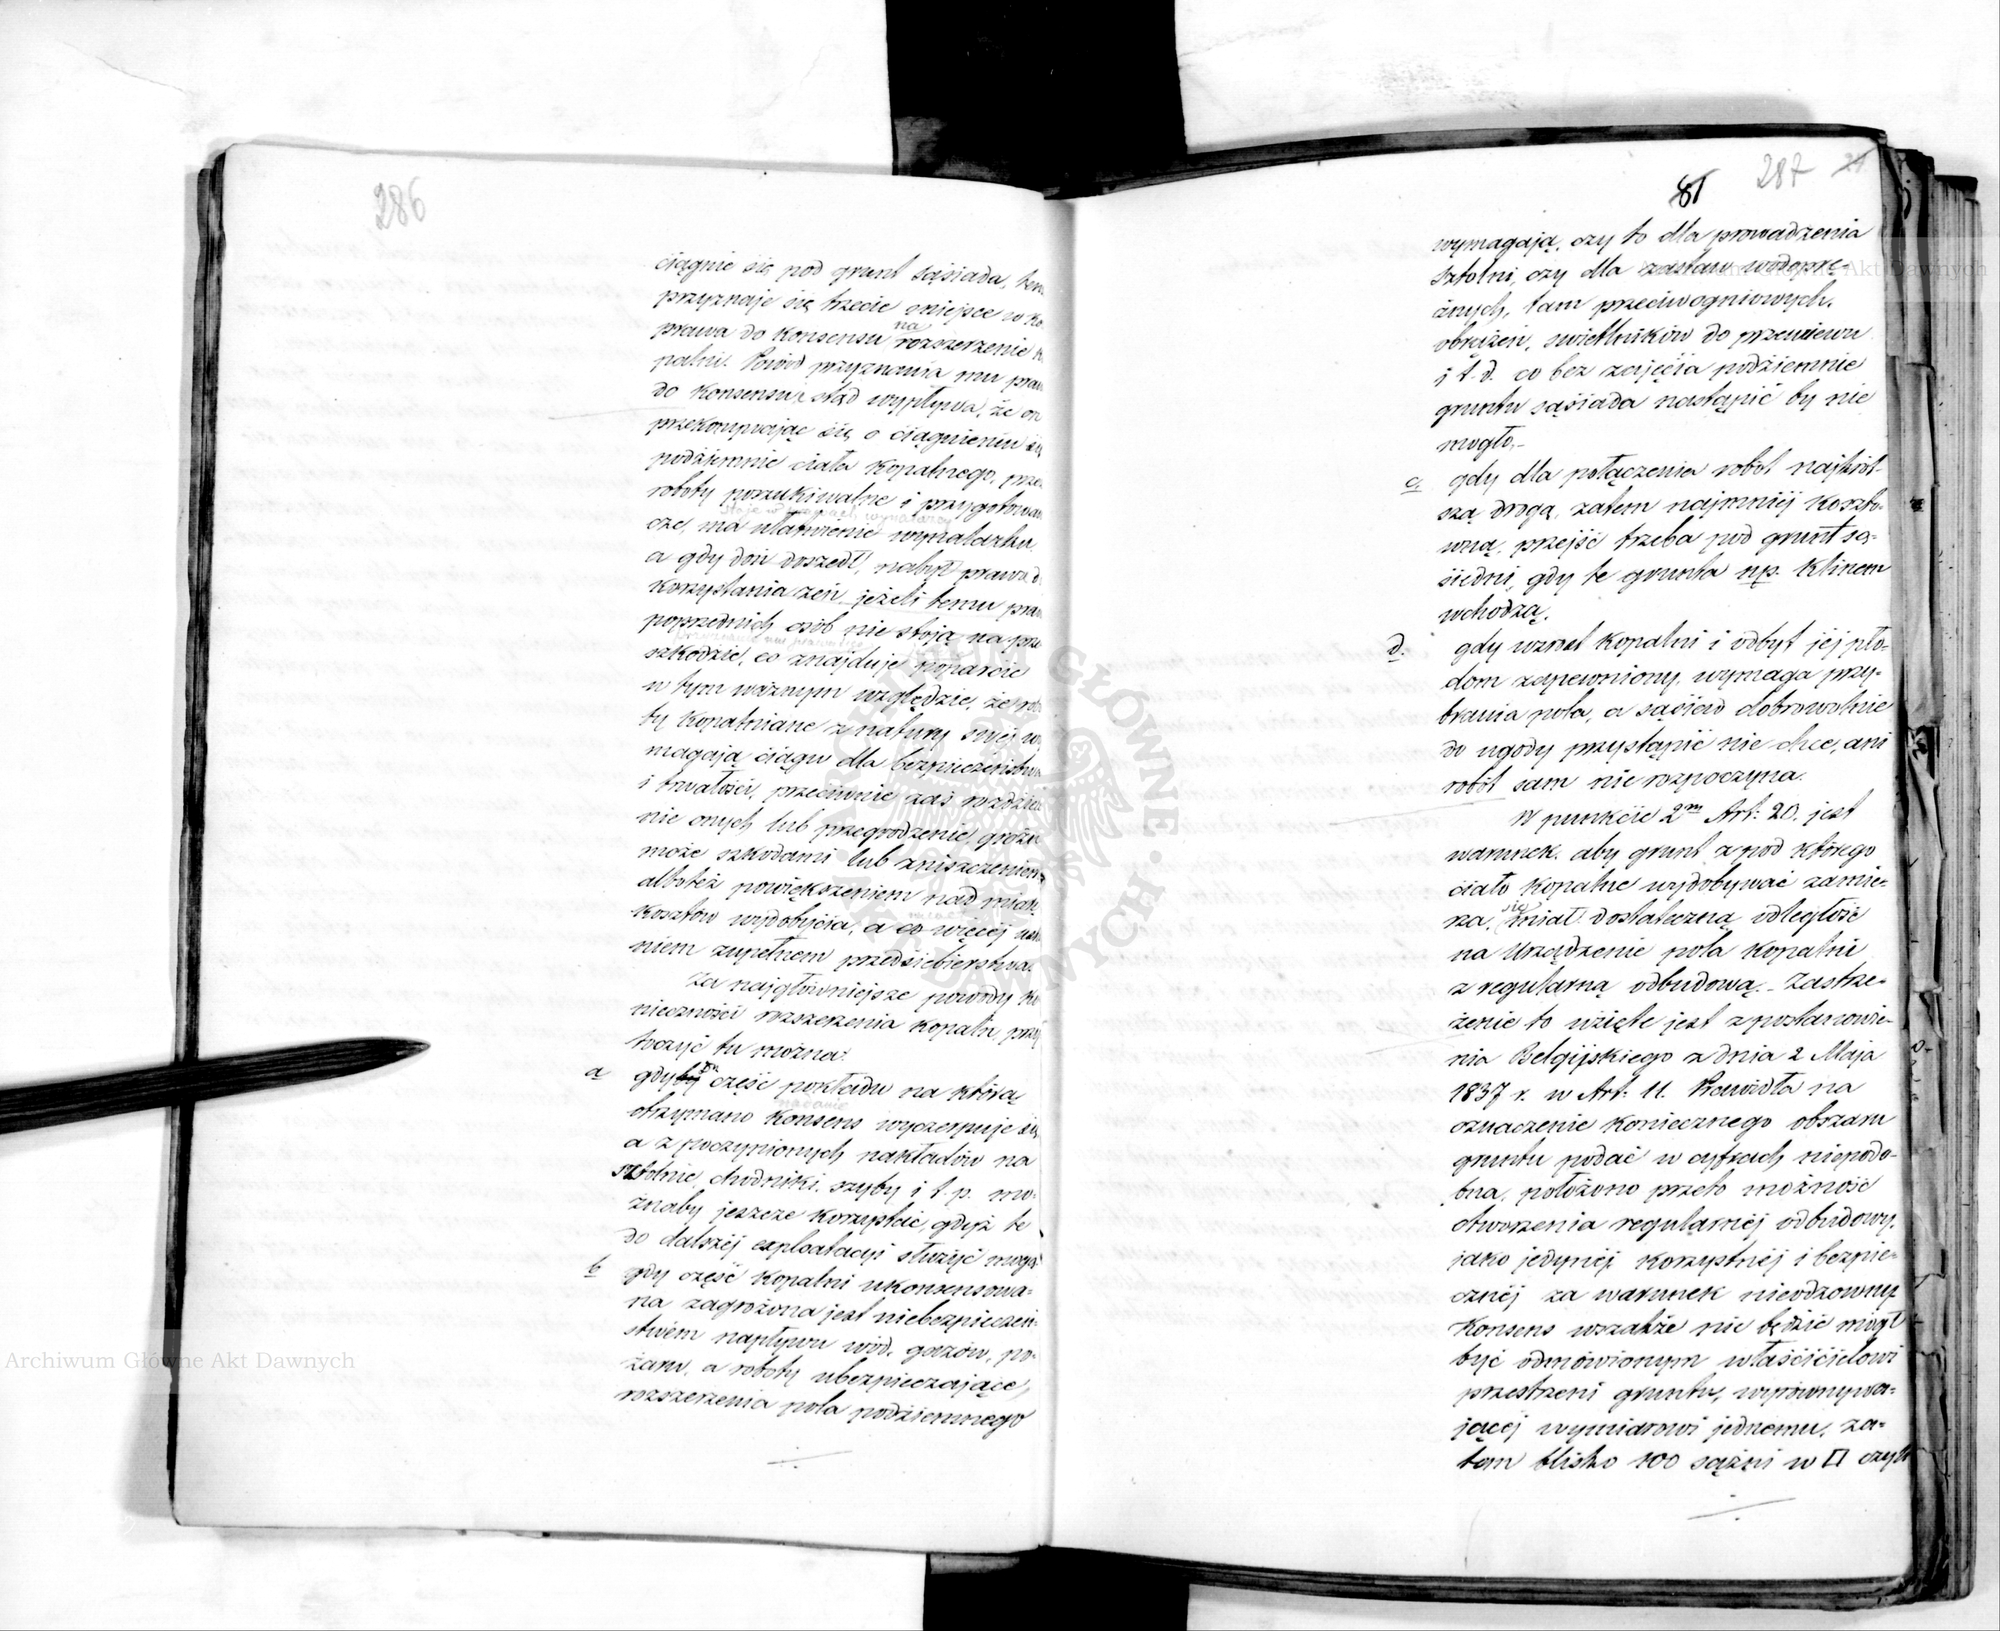 286
ciągnie się pod grunt sąsiada, tem
przyznaje się trzecie miejsce w ko
prawa do konsensu na rozszerzenie k
palni. Powód przyznania mu pra
do konsensu stąd wypływa, że on
przekonywając się o ciągnieniu się
podziemnie ciała kopalnego, prze
roboty poszukiwalne i przygotowa
cze, ma ułatwienie wynalazku,
a gdy doń doszedł, nabył prawa d
korzystania zeń, jeżeli temu pra
poprzednich osób nie stoją na prze
szkodzie, co znajduje poparcie
w tym ważnym względzie, że robo
ty kopalniane z natury swéj wy
magają ciągu dla bezpieczeństwa
i trwałości, przeciwnie zaś rozdziele
nie onych lub przegrodzenie, grozić
może szkodami lub zniszczeniem
alboteż powiększeniem nad miarę
kosztów wydobycia, a co więcej
niem zupełnem przedsiebierstwa.
Za najgłówniejsze powody ko
nieczności rozszerzenia kopalń, przy
toczyć tu można:
a gdyby część pokładu na którą
nadanie
otrzymano konsens wyczerpuje się,
a z poczynionych nakładów na
sztolnie, chodniki, szyby i t. p. mo-
żnaby jeszcze korzystać, gdyż te
do dalszéj exploatacyi służyć mogą
b gdy część kopalni ukonsensowa-
na zagrożona jest niebezpieczeń-
stwem napływu wód, gazów, po-
żaru, a roboty ubezpieczające,
rozszerzenia pola podziemnego
81 287 21
wymagają, czy to dla prowadzenia
sztolni, czy dla zastaw wodoprę-
żnych, tam przeciwogniowych,
obrażeń, świetlników do przewiewu
i t. d. co bez zajęcia podziemnie
gruntu sąsiada nastąpić by nie
mogło.
c, gdy dla połączenia robót najkrót-
szą drogą, zatem najmniéj koszto-
wną, przejść trzeba pod grunt są-
siedni, gdy te grunta np. klinem
wchodzą.
d. gdy wzrost kopalni i odbyt jéj pło-
dom zapewniony, wymaga przy-
brania pola, a sąsiad dobrowolnie
do ugody przystąpić nie chce, ani
robót sam nie rozpoczyna.
W punkcie 2m Art: 20. jest
warunek, aby grunt z pod którego
ciało kopalne wydobywać zamie-
rza, się miał dostateczną odległość
na urządzenie pola kopalni
z regularną odbudową. Zastrze-
żenie to wzięte jest z postanowie-
nia Belgijskiego z dnia 2 Maja
1837 r. w Art: 11. Prawidła na
oznaczenie koniecznego obszaru
gruntu podać w cyfrach niepodo-
bna, położono przeto możność
otworzenia regularnéj odbudowy,
jako jedynéj korzystnéj i bezpie-
cznéj za warunek nieodzowny
Konsens wszakże nie będzie mógł
być odmówionym właścicielowi
przestrzeni gruntu, wyrównywa-
jącéj wymiarowi jednemu, za-
tem blisko 100 sążni w □ czyli
Archiwum Główne Akt Dawnych